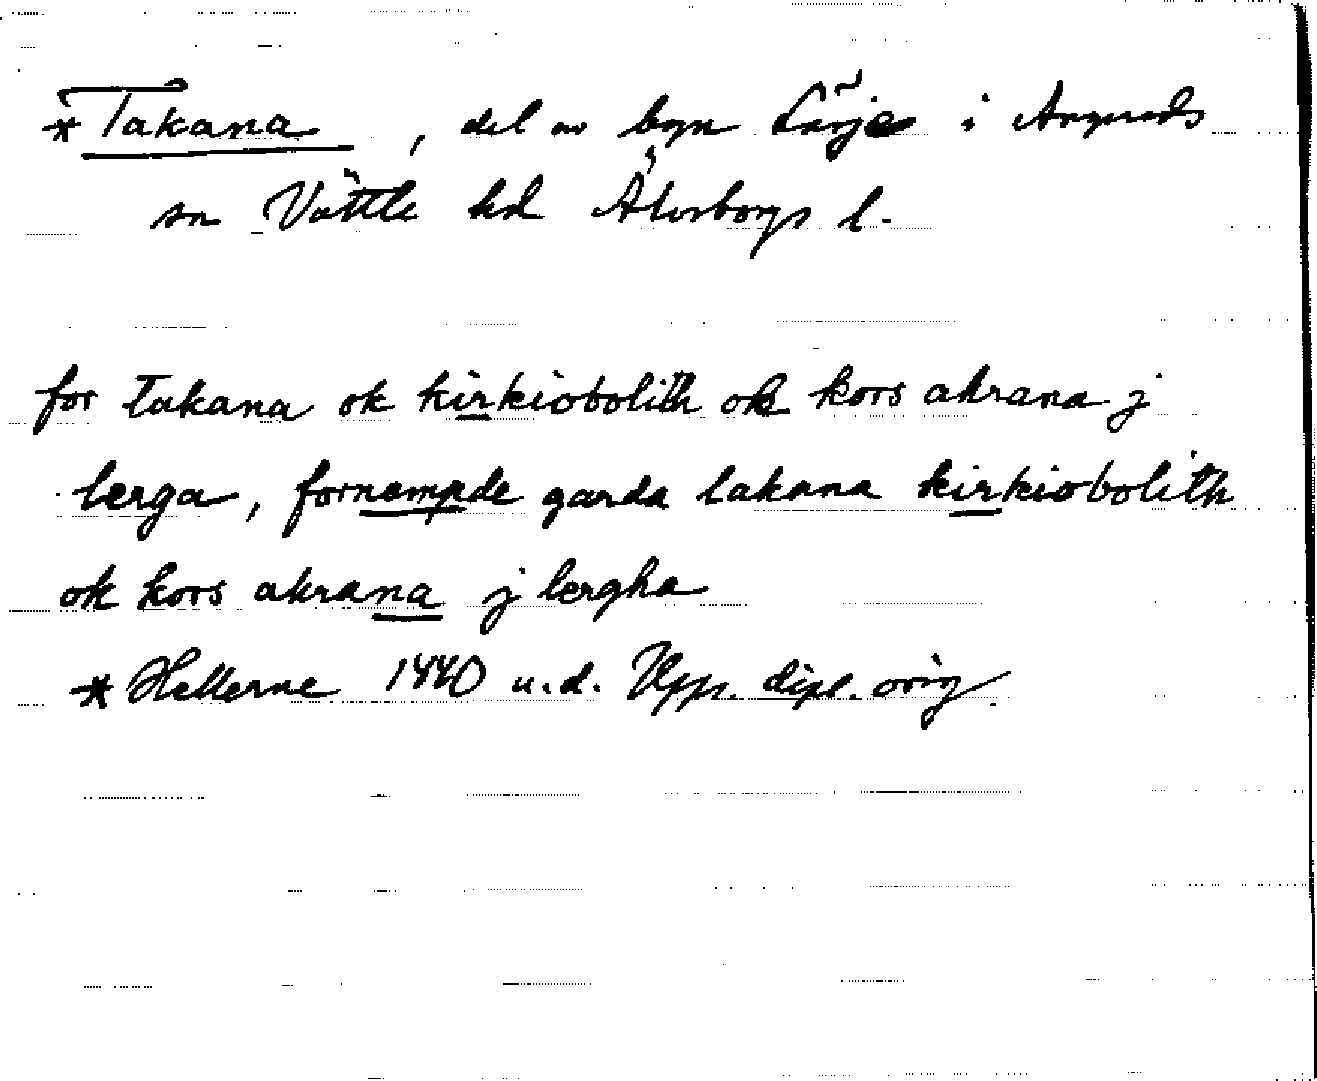 * Takana, del av byn Lärje i Angereds
sn Vättle hd Älvsborgs l.
for takana ok kirkiobolith ok kors akrana j
lerga, fornempde garda takana kirkiobolith
ok kors akrana j lergha
* Hellerne 1440 u.d. Upps. dipl. orig